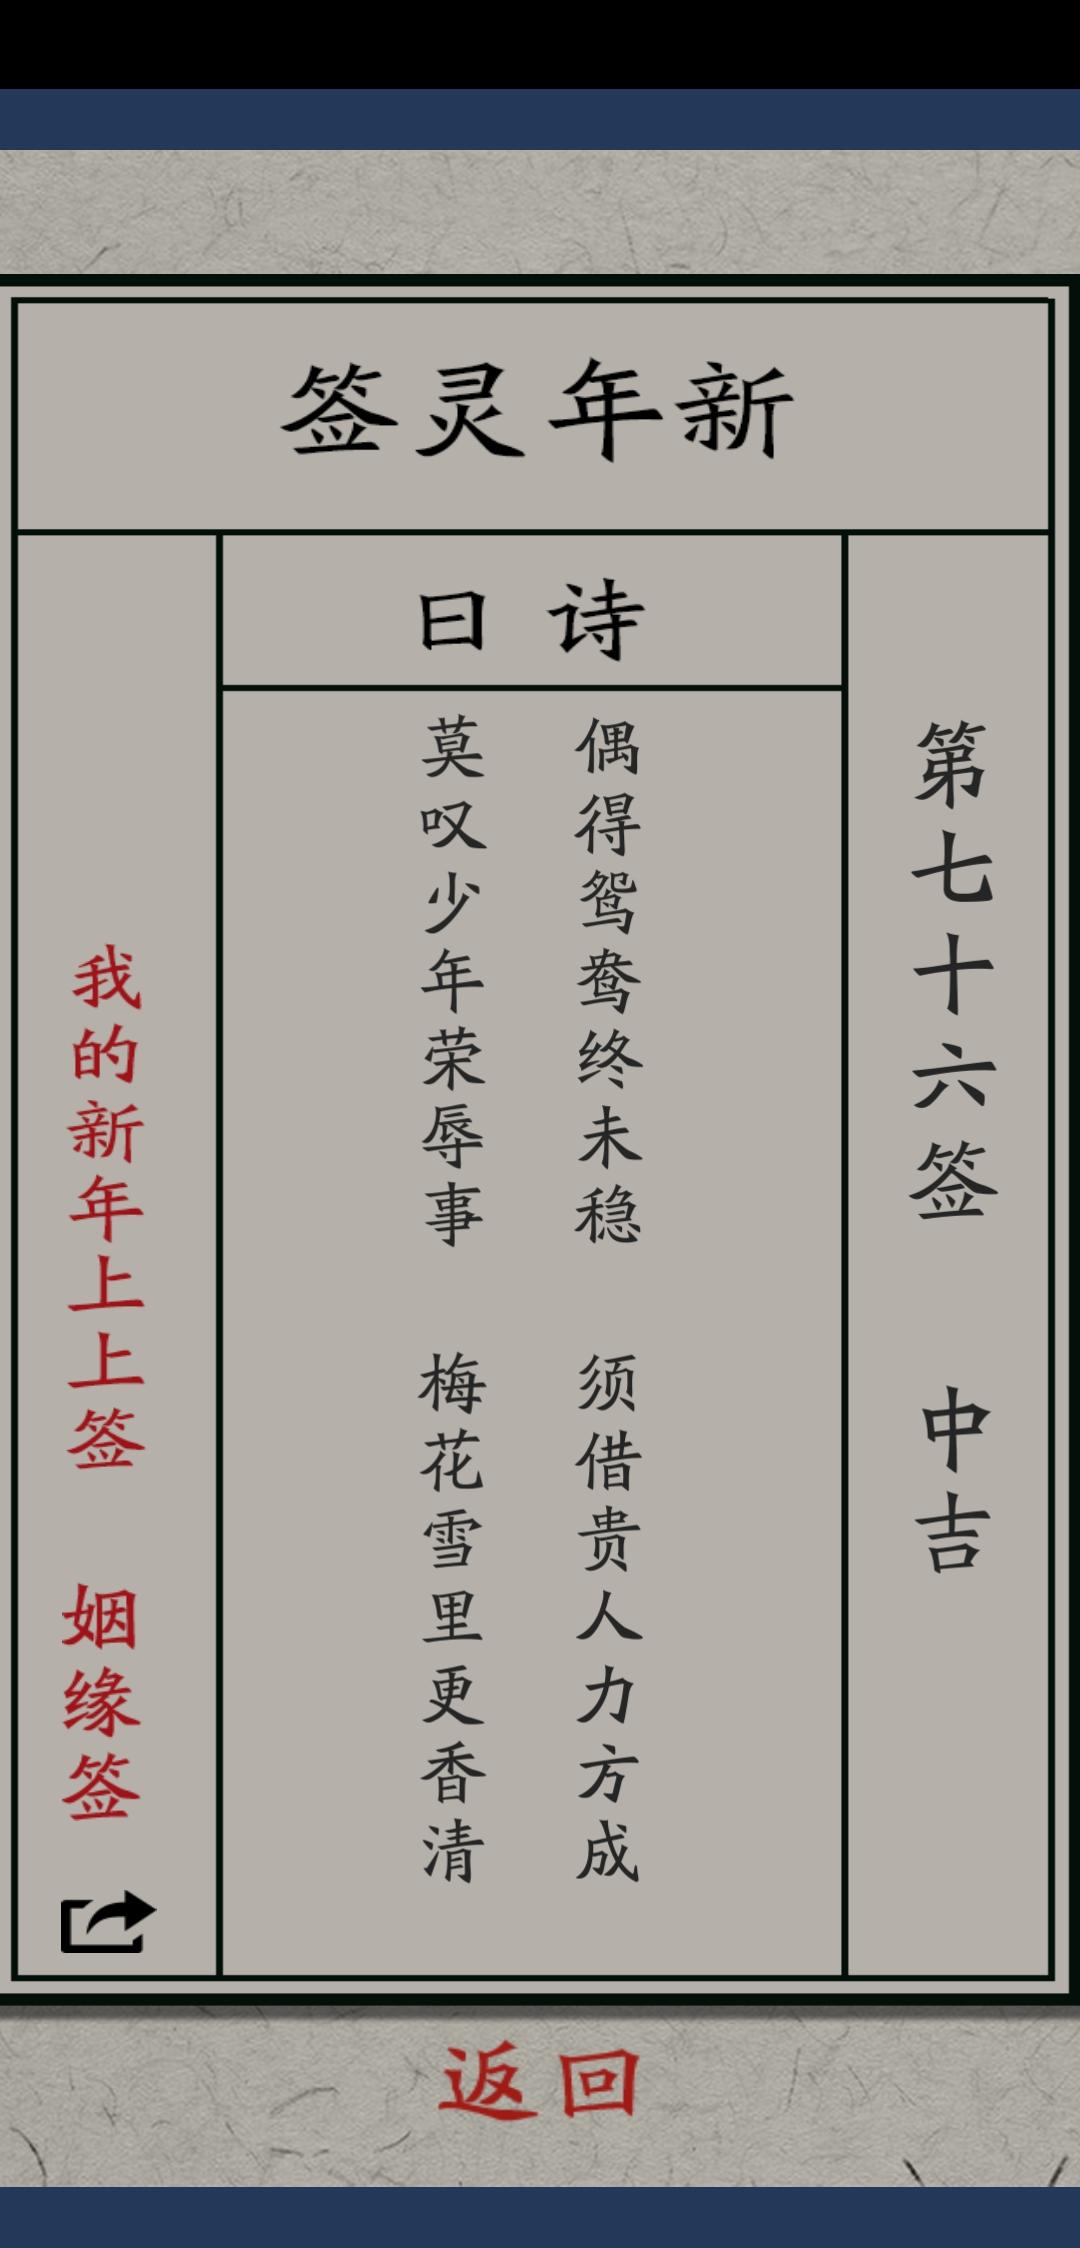 新年灵签
第七十六签 中吉
诗曰
偶得鸳鸯终未稳 须借贵人力方成
莫叹少年荣辱事 梅花雪里更香清
我的新年上上签 姻缘签
返回